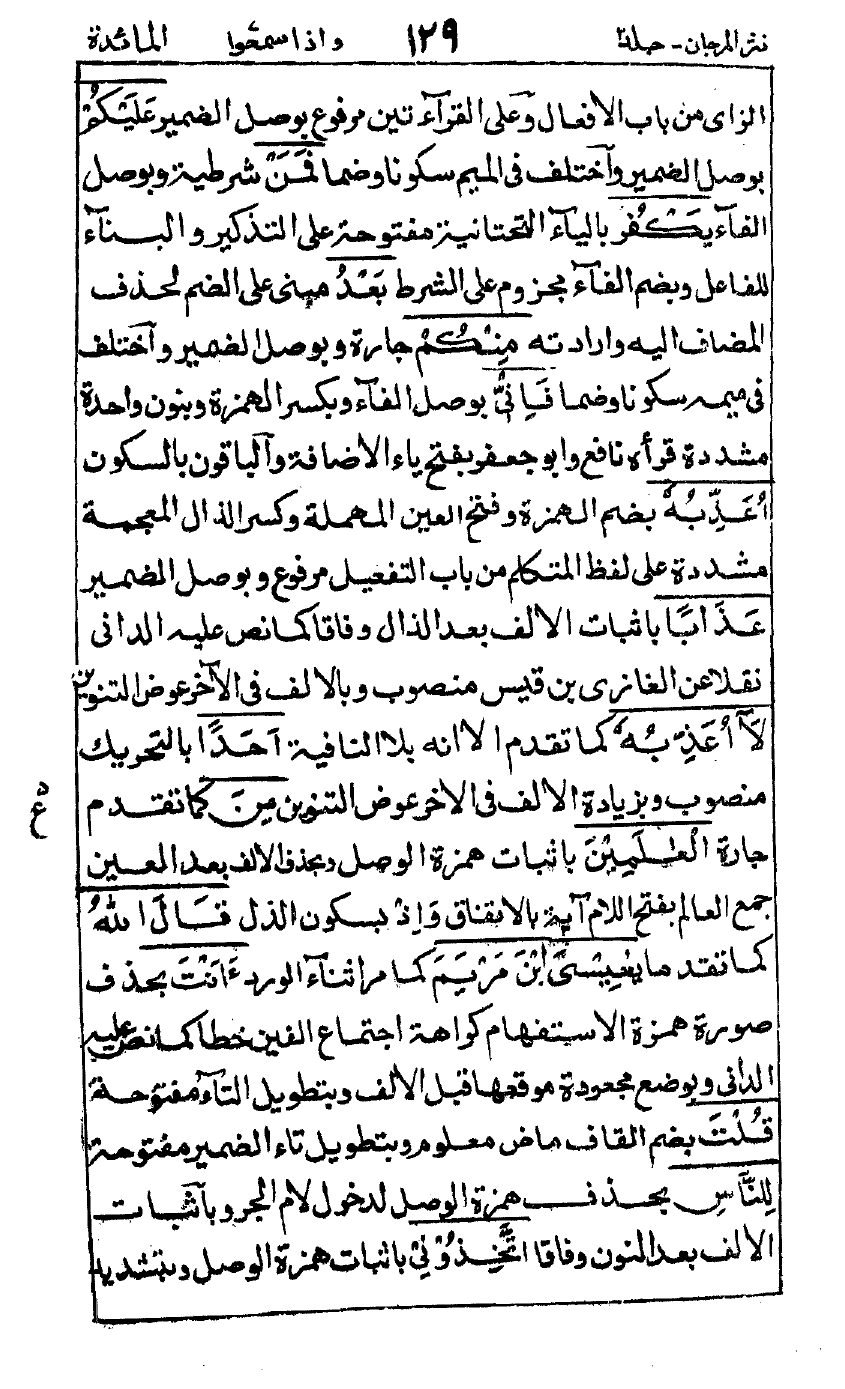 نثر المرجان - جلد٢ ١٢٩ واذا سمعوا المائدة
الزاى من باب الافعال وعلى القرآءتين مرفوع بوصل الضمير عَلَيْكُمْ
بوصل الضمير وآختلف فى الميم سكونا وضما فَمَنْ شرطية وبوصل
الفآء يَكْفُرْ بالياء التحتانية مفتوحة على التذكير والبنآء
للفاعل وبضم الفآء مجزوم على الشرط بَعْدُ مبنى على الضم لحذف
المضاف اليه وارادته مِنْكُمْ جارة وبوصل الضمير وآختلف
فى ميمه سكونا وضما فَاِنِّىْ بوصل الفآء وبكسر الهمزة وبنون واحدة
مشددة قرأه نافع وابو جعفر بفتح ياء الاضافة وآلباقون بالسكون
اُعَذِّبُهٗ بضم الهمزة وفتح العين المهملة وكسر الذال المعجمة
مشددة على لفظ المتكلم من باب التفعيل مرفوع وبوصل الضمير
عَذَابًا باثبات الالف بعد الذال وفاقا كما نص عليه الدانى
نقلا عن الغازى بن قيس منصوب وبالالف فى الآخر عوض التنوين
لَآ اُعَذِّبُهٗ كما تقدم الا انه بلا النافية اَحَدًا بالتحريك
منصوب وبزيادة الالف فى الاخر عوض التنوين مِنَ كما تقدم
جارة الْعٰلَمِيْنَ باثبات همزة الوصل وبحذف الالف بعد العين
جمع العالم بفتح اللام آية بالاتفاق وَاِذْ بسكون الذل قَالَ اللهُ
كما تقدما يٰعِيْسَى ابْنَ مَرْيَمَ كما مر اثنآء الورد ءَاَنْتَ بحذف
صورة همزة الاستفهام كراهة اجتماع الفين خطا كما نص عليه
الدانى وبوضع مجعودة موقعها قبل الالف وبتطويل التآء مفتوحة
قُلْتَ بضم القاف ماض معلوم وبتطويل تاء الضمير مفتوحة
لِلنَّاسِ بحذف همزة الوصل لدخول لام الجر وبآثبات
الالف بعد النون وفاقا اتَّخِذُوْنِىْ باثبات همزة الوصل وبتشديد